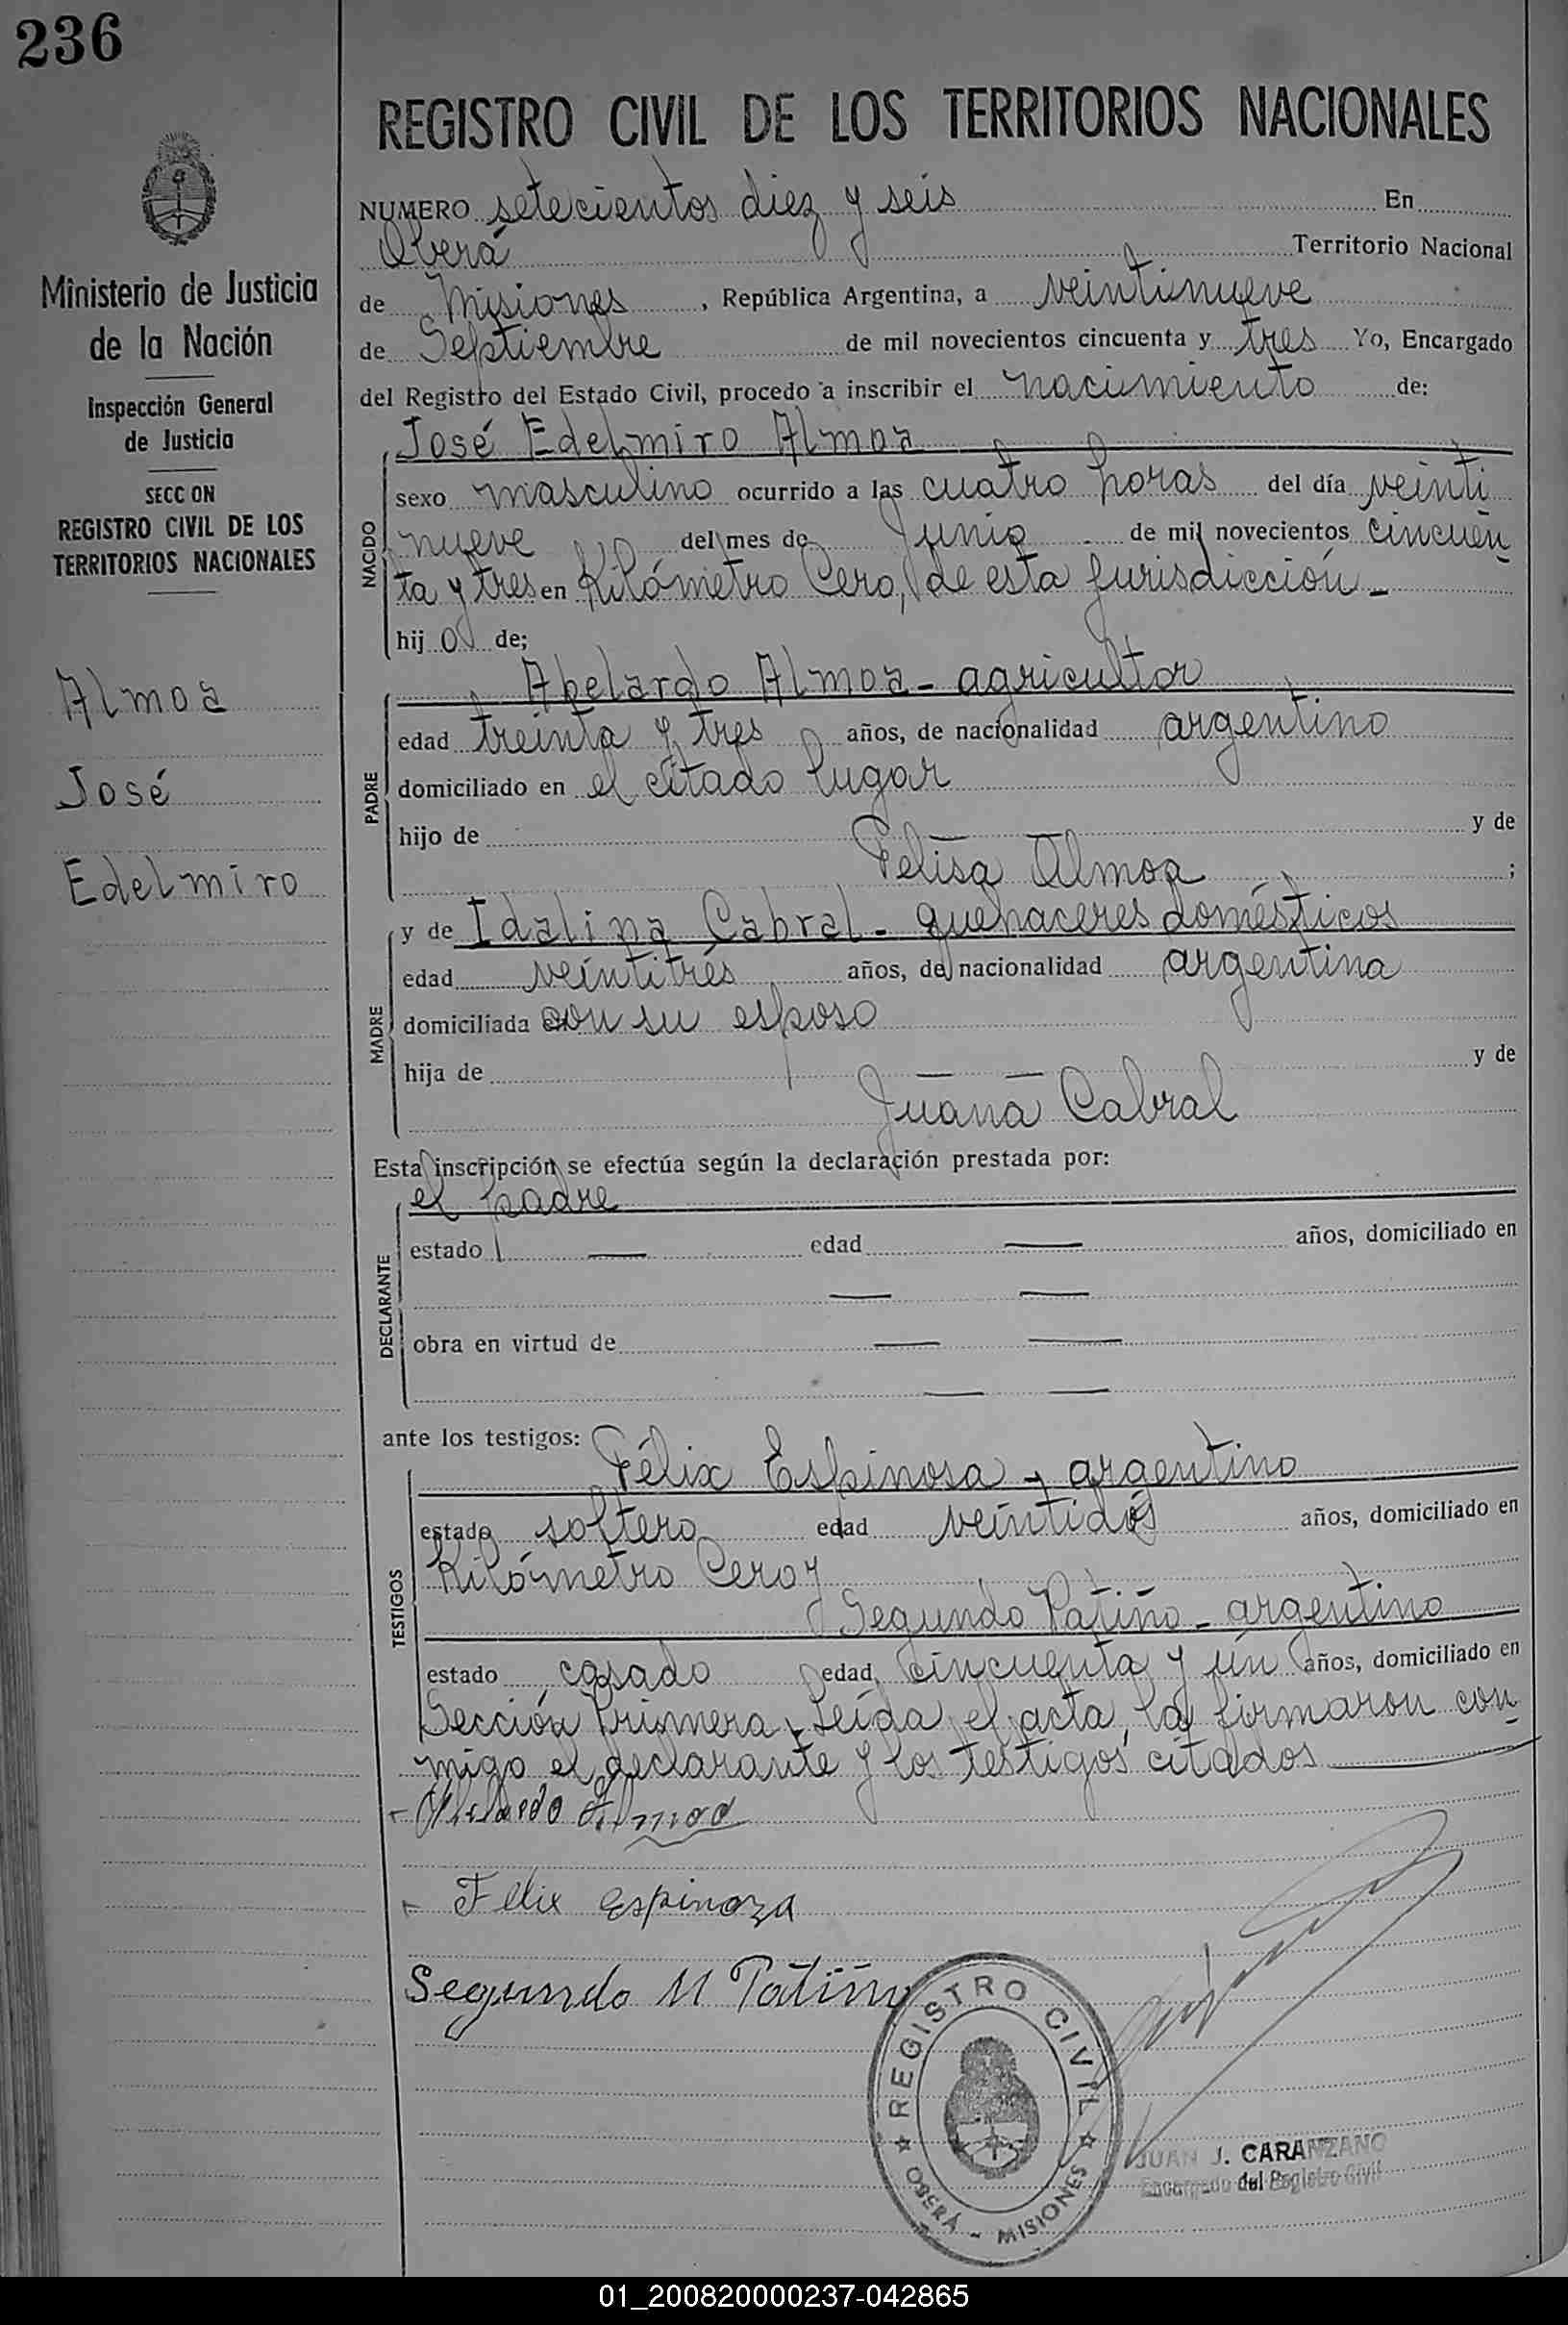 236
REGISTRO CIVIL DE LOS TERRITORIOS NACIONALES
Ministerio de Justicia
de la Nación
Inspección General
de Justicia
SECC ON
REGISTRO CIVIL DE LOS
TERRITORIOS NACIONALES
Almoa
José
Edelmiro
NUMERO setecientos diez y seis En
Oberá Territorio Nacional
de Misiones, República Argentina, a veintinueve
de Septiembre de mil novecientos cincuenta y tres Yo, Encargado
del Registro del Estado Civil, procedo a inscribir el nacimiento de:
José Edelmiro Almoa
NACIDO
sexo masculino ocurrido a las cuatro horas del día veinti
nueve del mes de Junio de mil novecientos cincuen
ta y tres en Kilómetro Cero, de esta jurisdicción -
hij o de;
Abelardo Almoa - agricultor
PADRE
edad treinta y tres años, de nacionalidad argentino
domiciliado en el citado lugar
hijo de — y de
Felisa Almoa ;
y de Idalina Cabral - quehaceres domésticos
MADRE
edad veintitrés años, de nacionalidad argentina
domiciliada con su esposo
hija de — — y de
Juana Cabral
Esta inscripción se efectúa según la declaración prestada por:
el padre
DECLARANTE
estado — edad — años, domiciliado en
— —
obra en virtud de — —
— —
ante los testigos:
Félix Espinosa - argentino
TESTIGOS
estado soltero edad veintidós años, domiciliado en
Kilómetro Cero y
Segundo Patiño - argentino
estado casado edad cincuenta y un años, domiciliado en
Sección Primera. Leída el acta, la firmaron con
migo el declarante y los testigos citados
Abelardo Almoa
Felix Espinoza
Segundo M Patiño
REGISTRO CIVIL
OBERÁ - MISIONES
JUAN J. CARANZANO
Encargado del Registro Civil
01_200820000237-042865